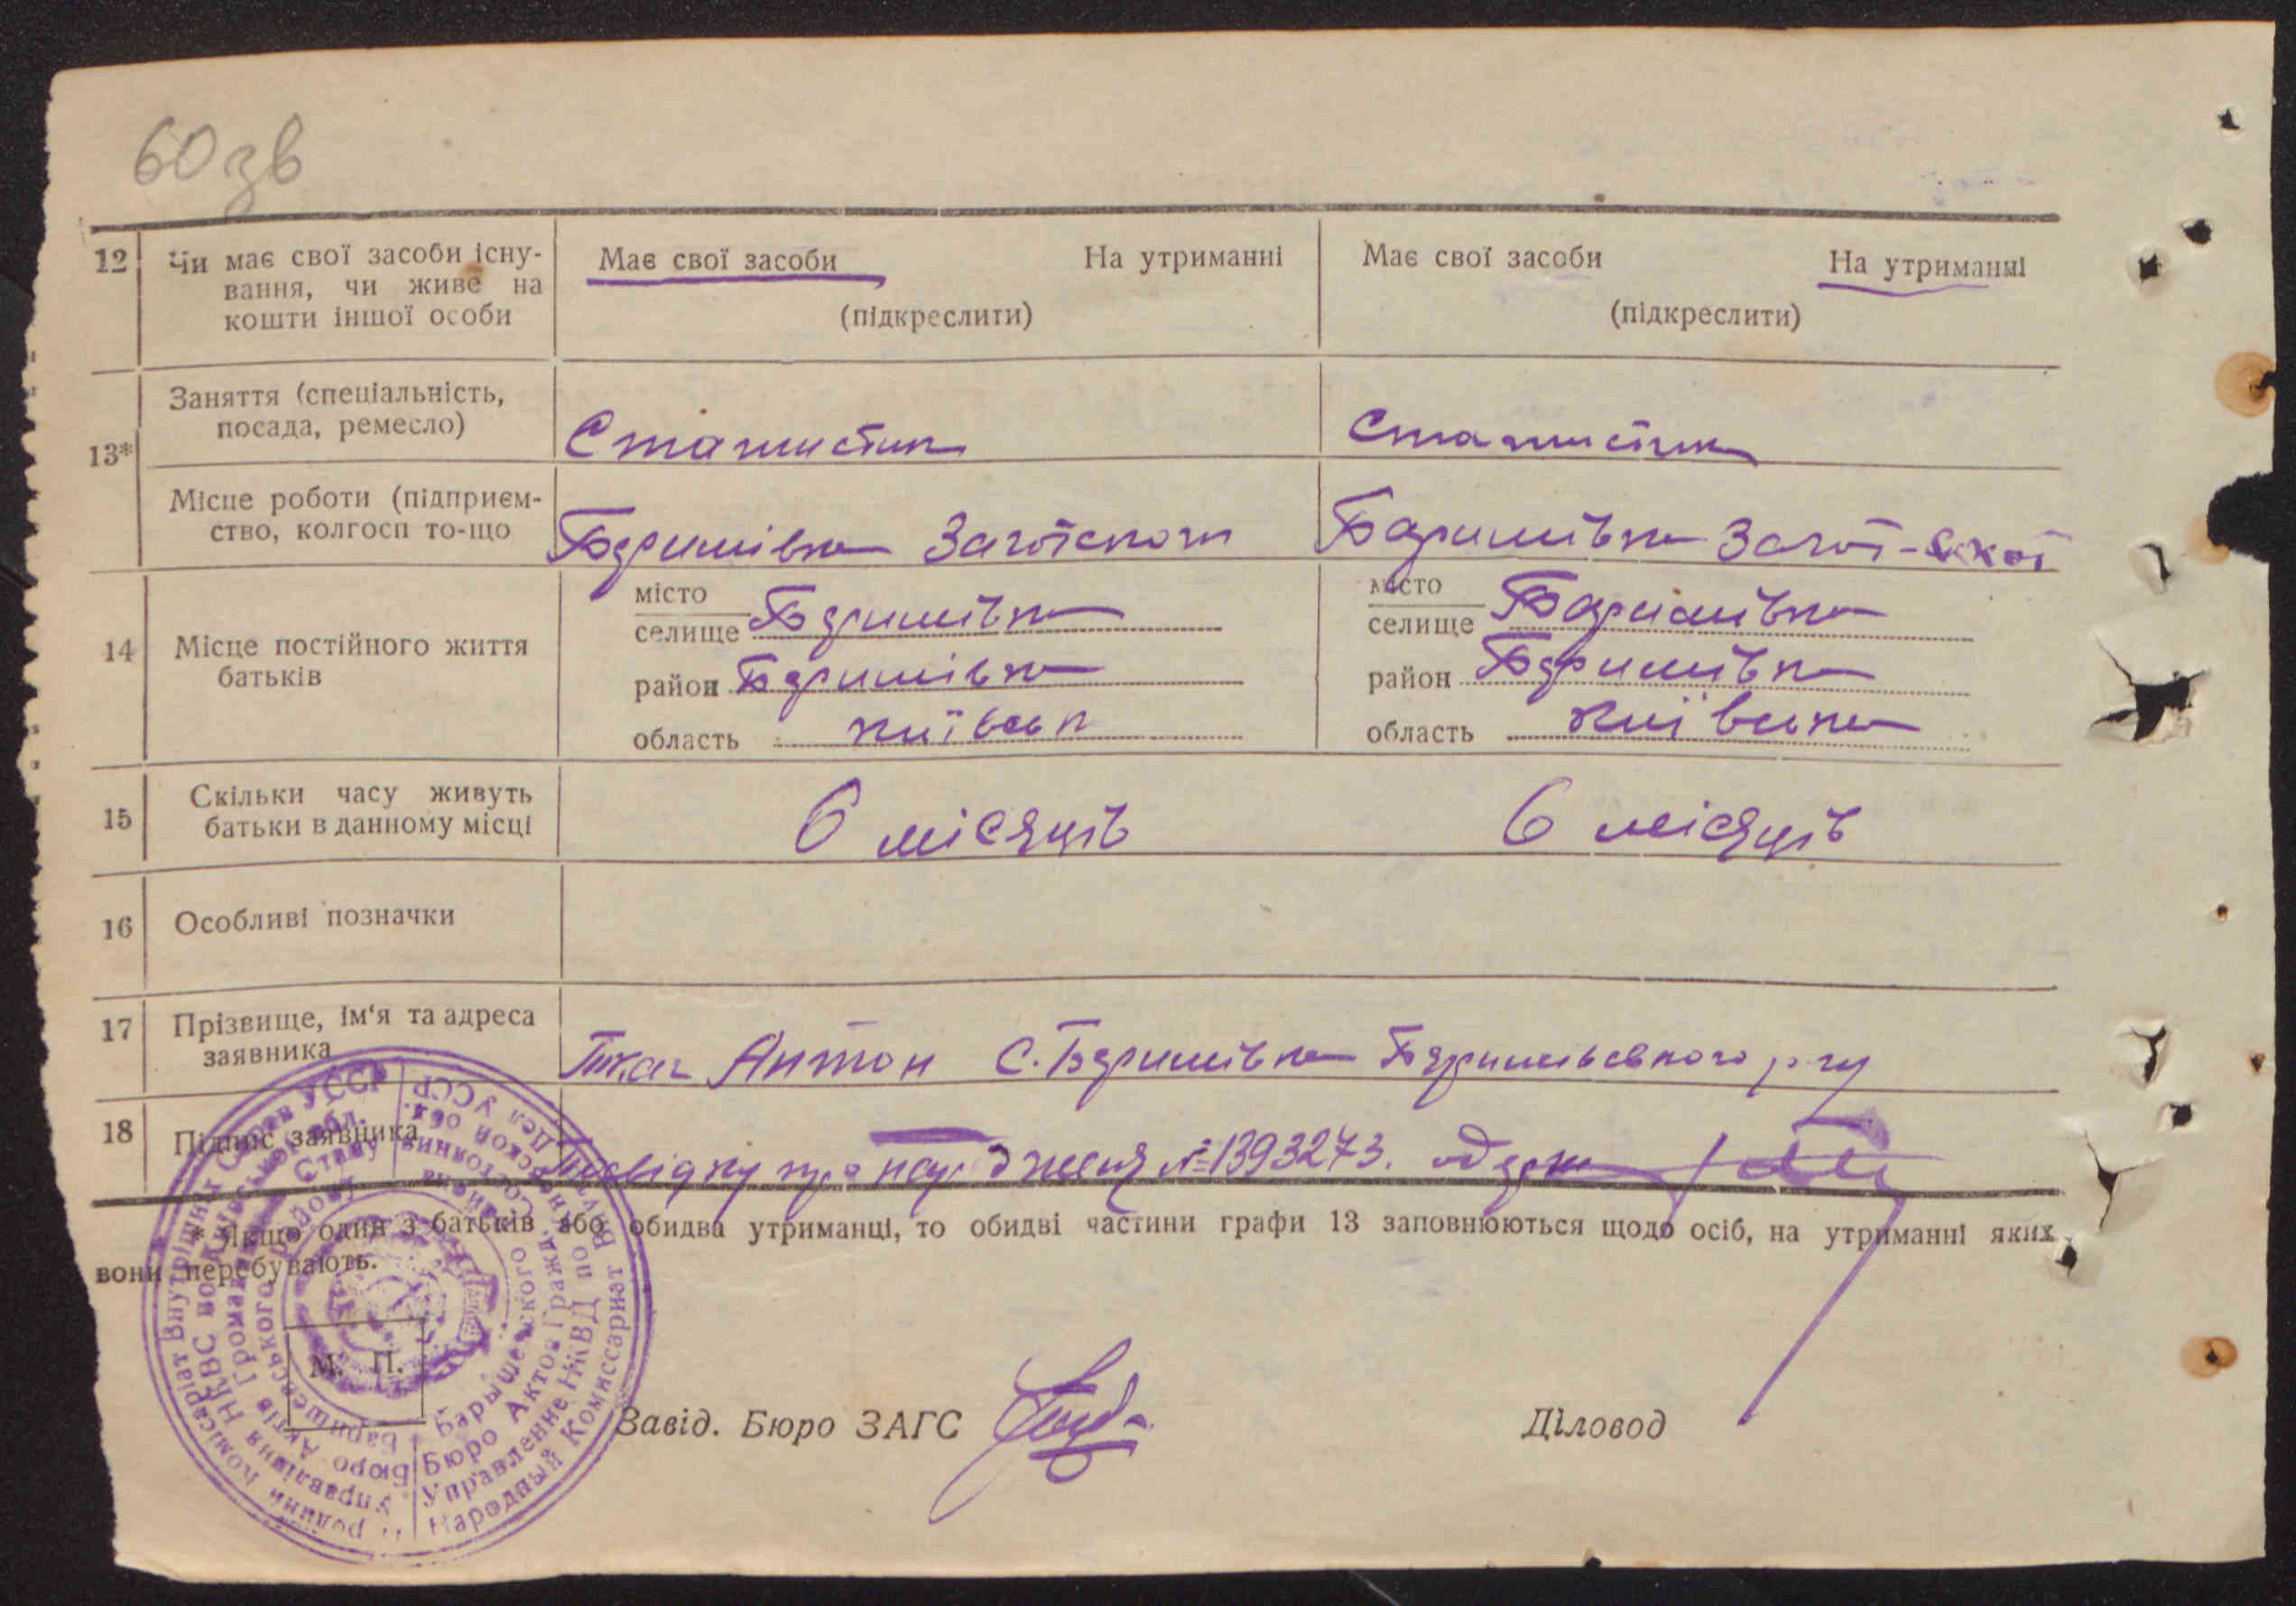 60зв
12 Чи має свої засоби існу-
вання, чи живе на
кошти іншої особи
Має свої засоби На утриманні
(підкреслити)
Має свої засоби На утриманні
(підкреслити)
13*
Заняття (спеціальність,
посада, ремесло)
Статистик
Статистик
Місце роботи (підприєм-
ство, колгосп то-що
Баришівка Заготскот
Баришівка Загот-скот
14 Місце постійного життя
батьків
місто
селище Баришівка
район Баришівка
область Київськ
місто
селище Баришівка
район Баришівка
область Київська
15 Скільки часу живуть
батьки в данному місці
6 місяців
6 місяців
16 Особливі позначки
17 Прізвище, ім'я та адреса
заявника
Ткач Антон С. Баришівка Баришівського р-ну
18 Підпис заявника
№ 1393273.
* Якщо один з батьків або обидва утриманці, то обидві частини графи 13 заповнюються щодо осіб, на утриманні яких
вони перебувають.
М. П.
Завід. Бюро ЗАГС
Діловод
Народный Комиссариат Внутр. Дел УССР
Управление НКВД по
Бюро Актов Гражд. состояния
Барышевского района